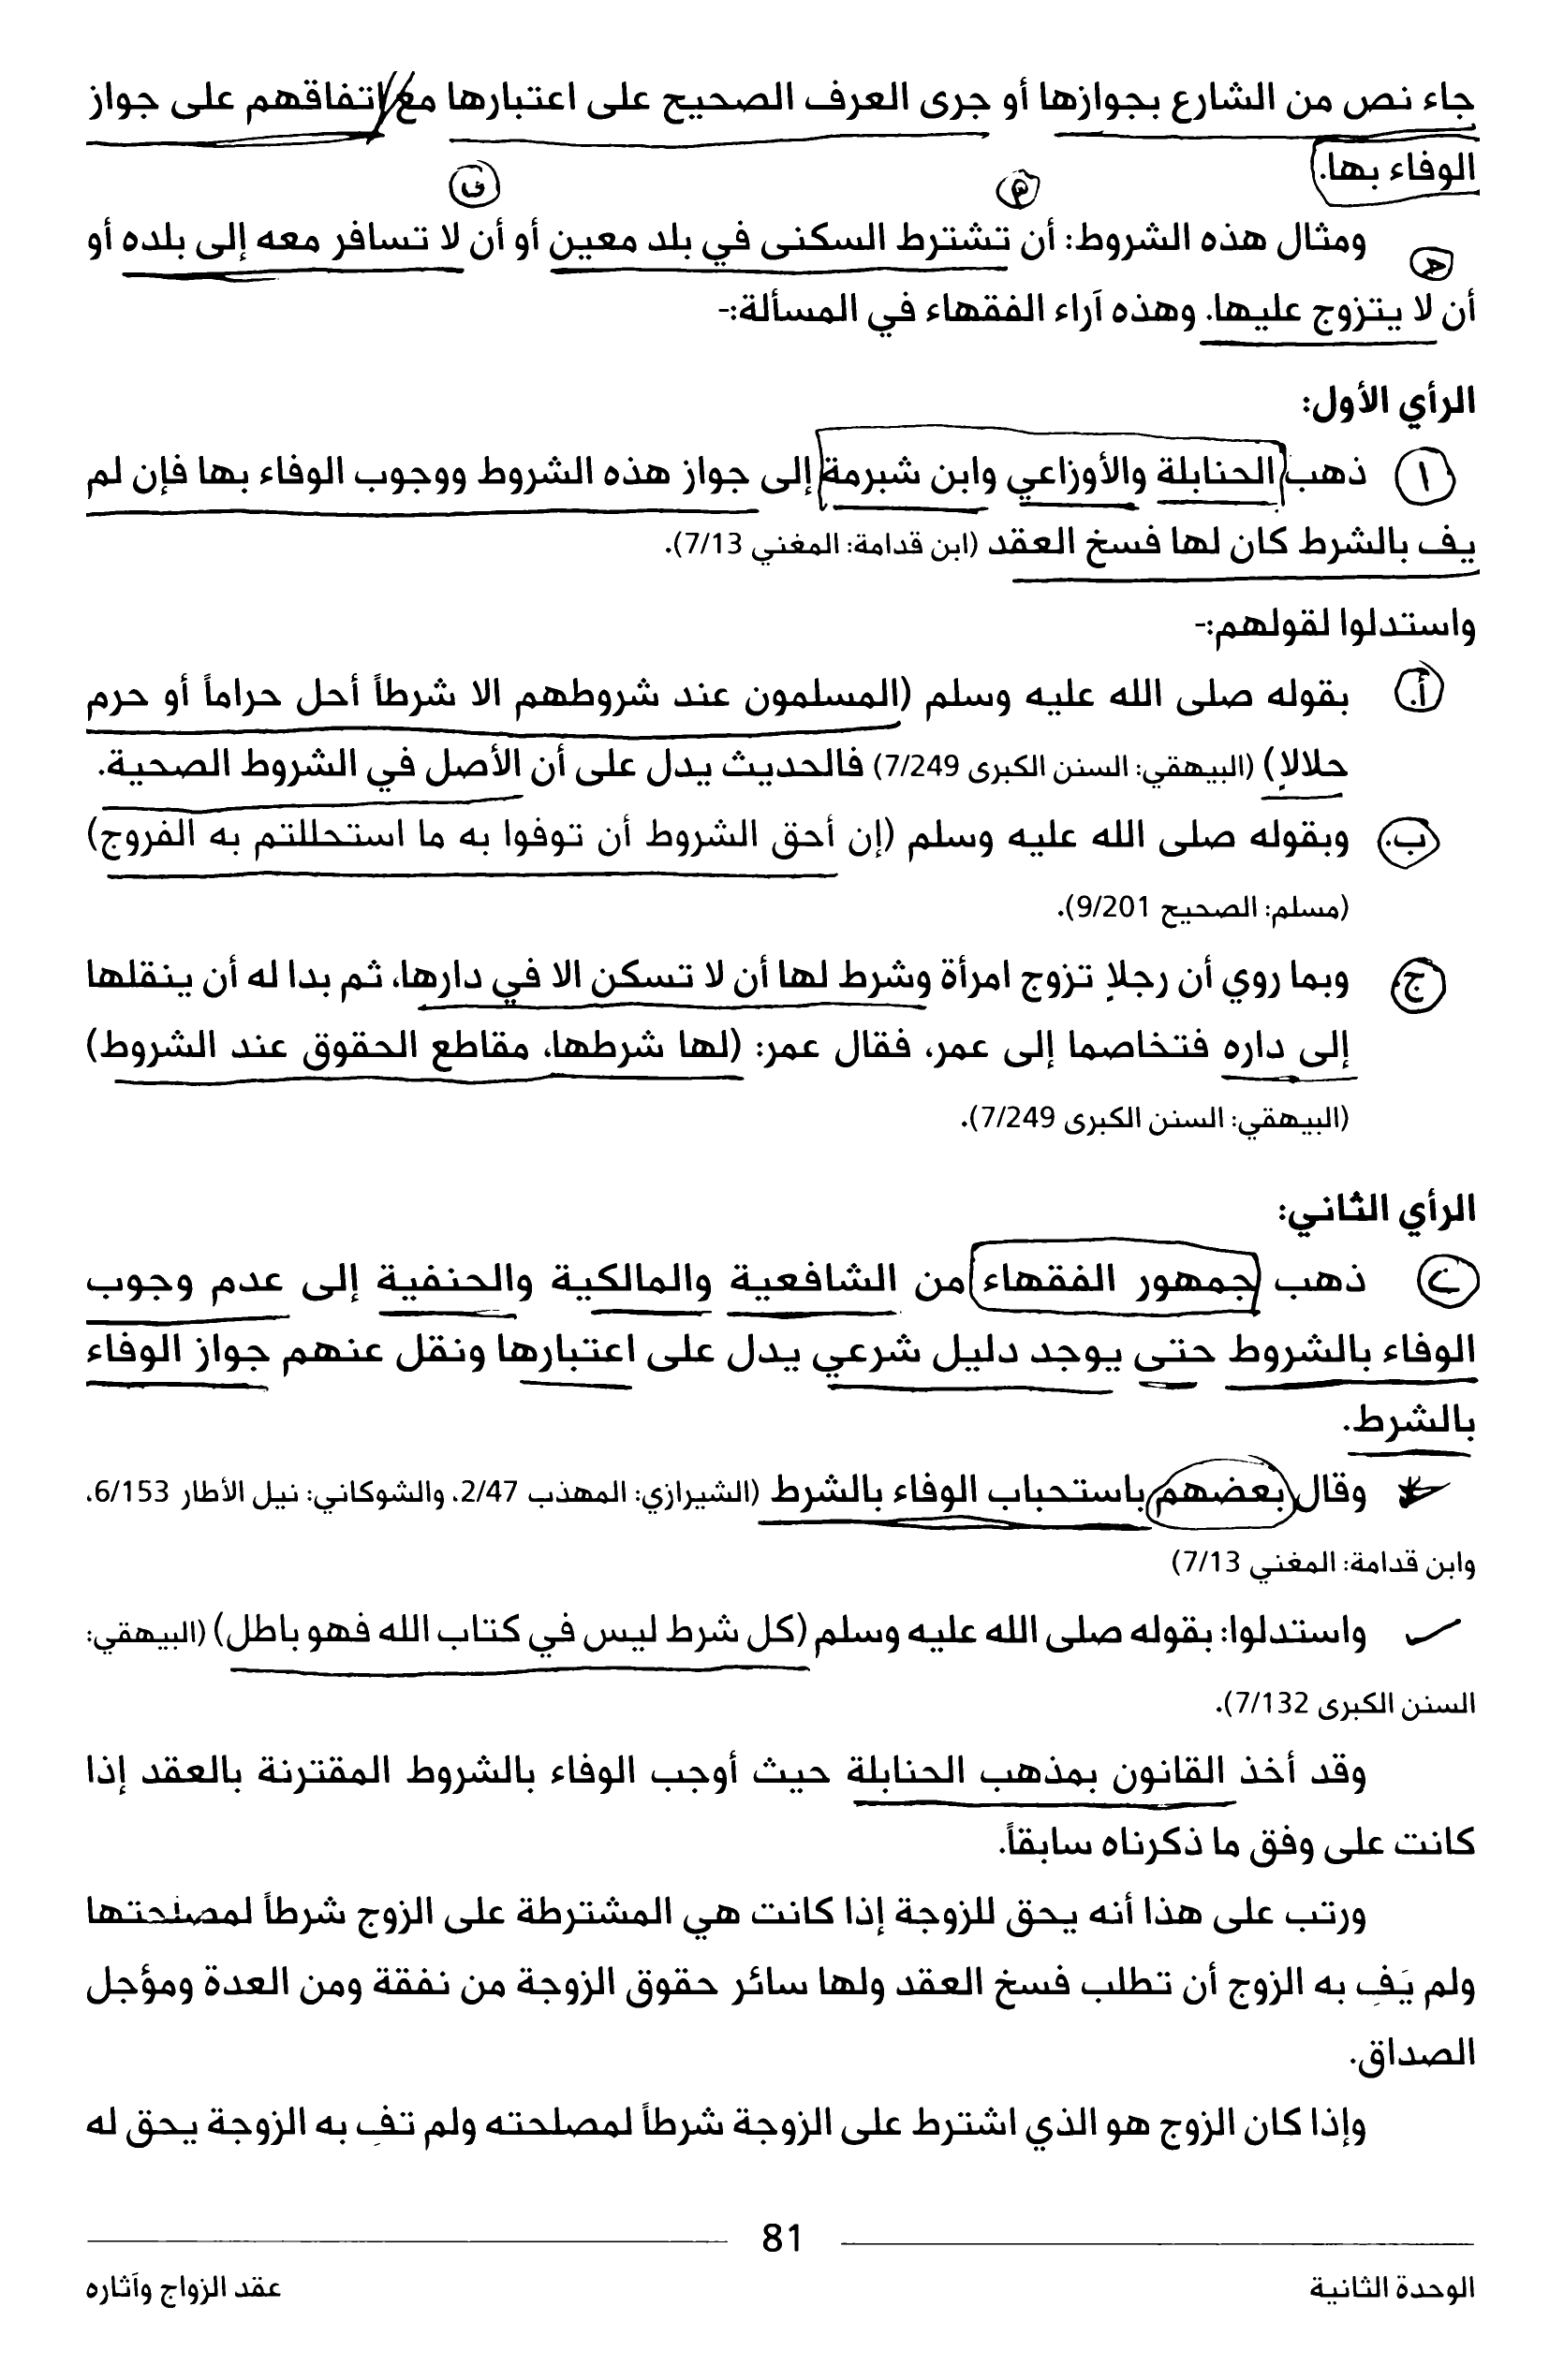 جاء نص من الشارع بجوازها أو جرى العرف الصحيح على اعتبارها مع اتفاقهم على جواز
الوفاء بها.
ومثال هذه الشروط: أن تشترط السكنى في بلد معين أو أن لا تسافر معه إلى بلده أو
أن لا يتزوج عليها. وهذه آراء الفقهاء في المسألة:-
الرأي الأول:
١ ذهب الحنابلة والأوزاعي وابن شبرمة إلى جواز هذه الشروط ووجوب الوفاء بها فإن لم
يف بالشرط كان لها فسخ العقد (ابن قدامة: المغني 7/13).
واستدلوا لقولهم:-
أ. بقوله صلى الله عليه وسلم (المسلمون عند شروطهم الا شرطاً أحل حراماً أو حرم
حلالاٍ) (البيهقي: السنن الكبرى 7/249) فالحديث يدل على أن الأصل في الشروط الصحية.
ب. وبقوله صلى الله عليه وسلم (إن أحق الشروط أن توفوا به ما استحللتم به الفروج)
(مسلم: الصحيح 9/201).
ج. وبما روي أن رجلاٍ تزوج امرأة وشرط لها أن لا تسكن الا في دارها، ثم بدا له أن ينقلها
إلى داره فتخاصما إلى عمر، فقال عمر: (لها شرطها، مقاطع الحقوق عند الشروط)
(البيهقي: السنن الكبرى 7/249).
الرأي الثاني:
٢ ذهب جمهور الفقهاء من الشافعية والمالكية والحنفية إلى عدم وجوب
الوفاء بالشروط حتى يوجد دليل شرعي يدل على اعتبارها ونقل عنهم جواز الوفاء
بالشرط.
وقال بعضهم باستحباب الوفاء بالشرط (الشيرازي: المهذب 2/47، والشوكاني: نيل الأطار 6/153،
وابن قدامة: المغني 7/13)
واستدلوا: بقوله صلى الله عليه وسلم (كل شرط ليس في كتاب الله فهو باطل) (البيهقي:
السنن الكبرى 7/132).
وقد أخذ القانون بمذهب الحنابلة حيث أوجب الوفاء بالشروط المقترنة بالعقد إذا
كانت على وفق ما ذكرناه سابقاً.
ورتب على هذا أنه يحق للزوجة إذا كانت هي المشترطة على الزوج شرطاً لمصلحتها
ولم يَفِ به الزوج أن تطلب فسخ العقد ولها سائر حقوق الزوجة من نفقة ومن العدة ومؤجل
الصداق.
وإذا كان الزوج هو الذي اشترط على الزوجة شرطاً لمصلحته ولم تفِ به الزوجة يحق له
81
الوحدة الثانية
عقد الزواج وآثاره